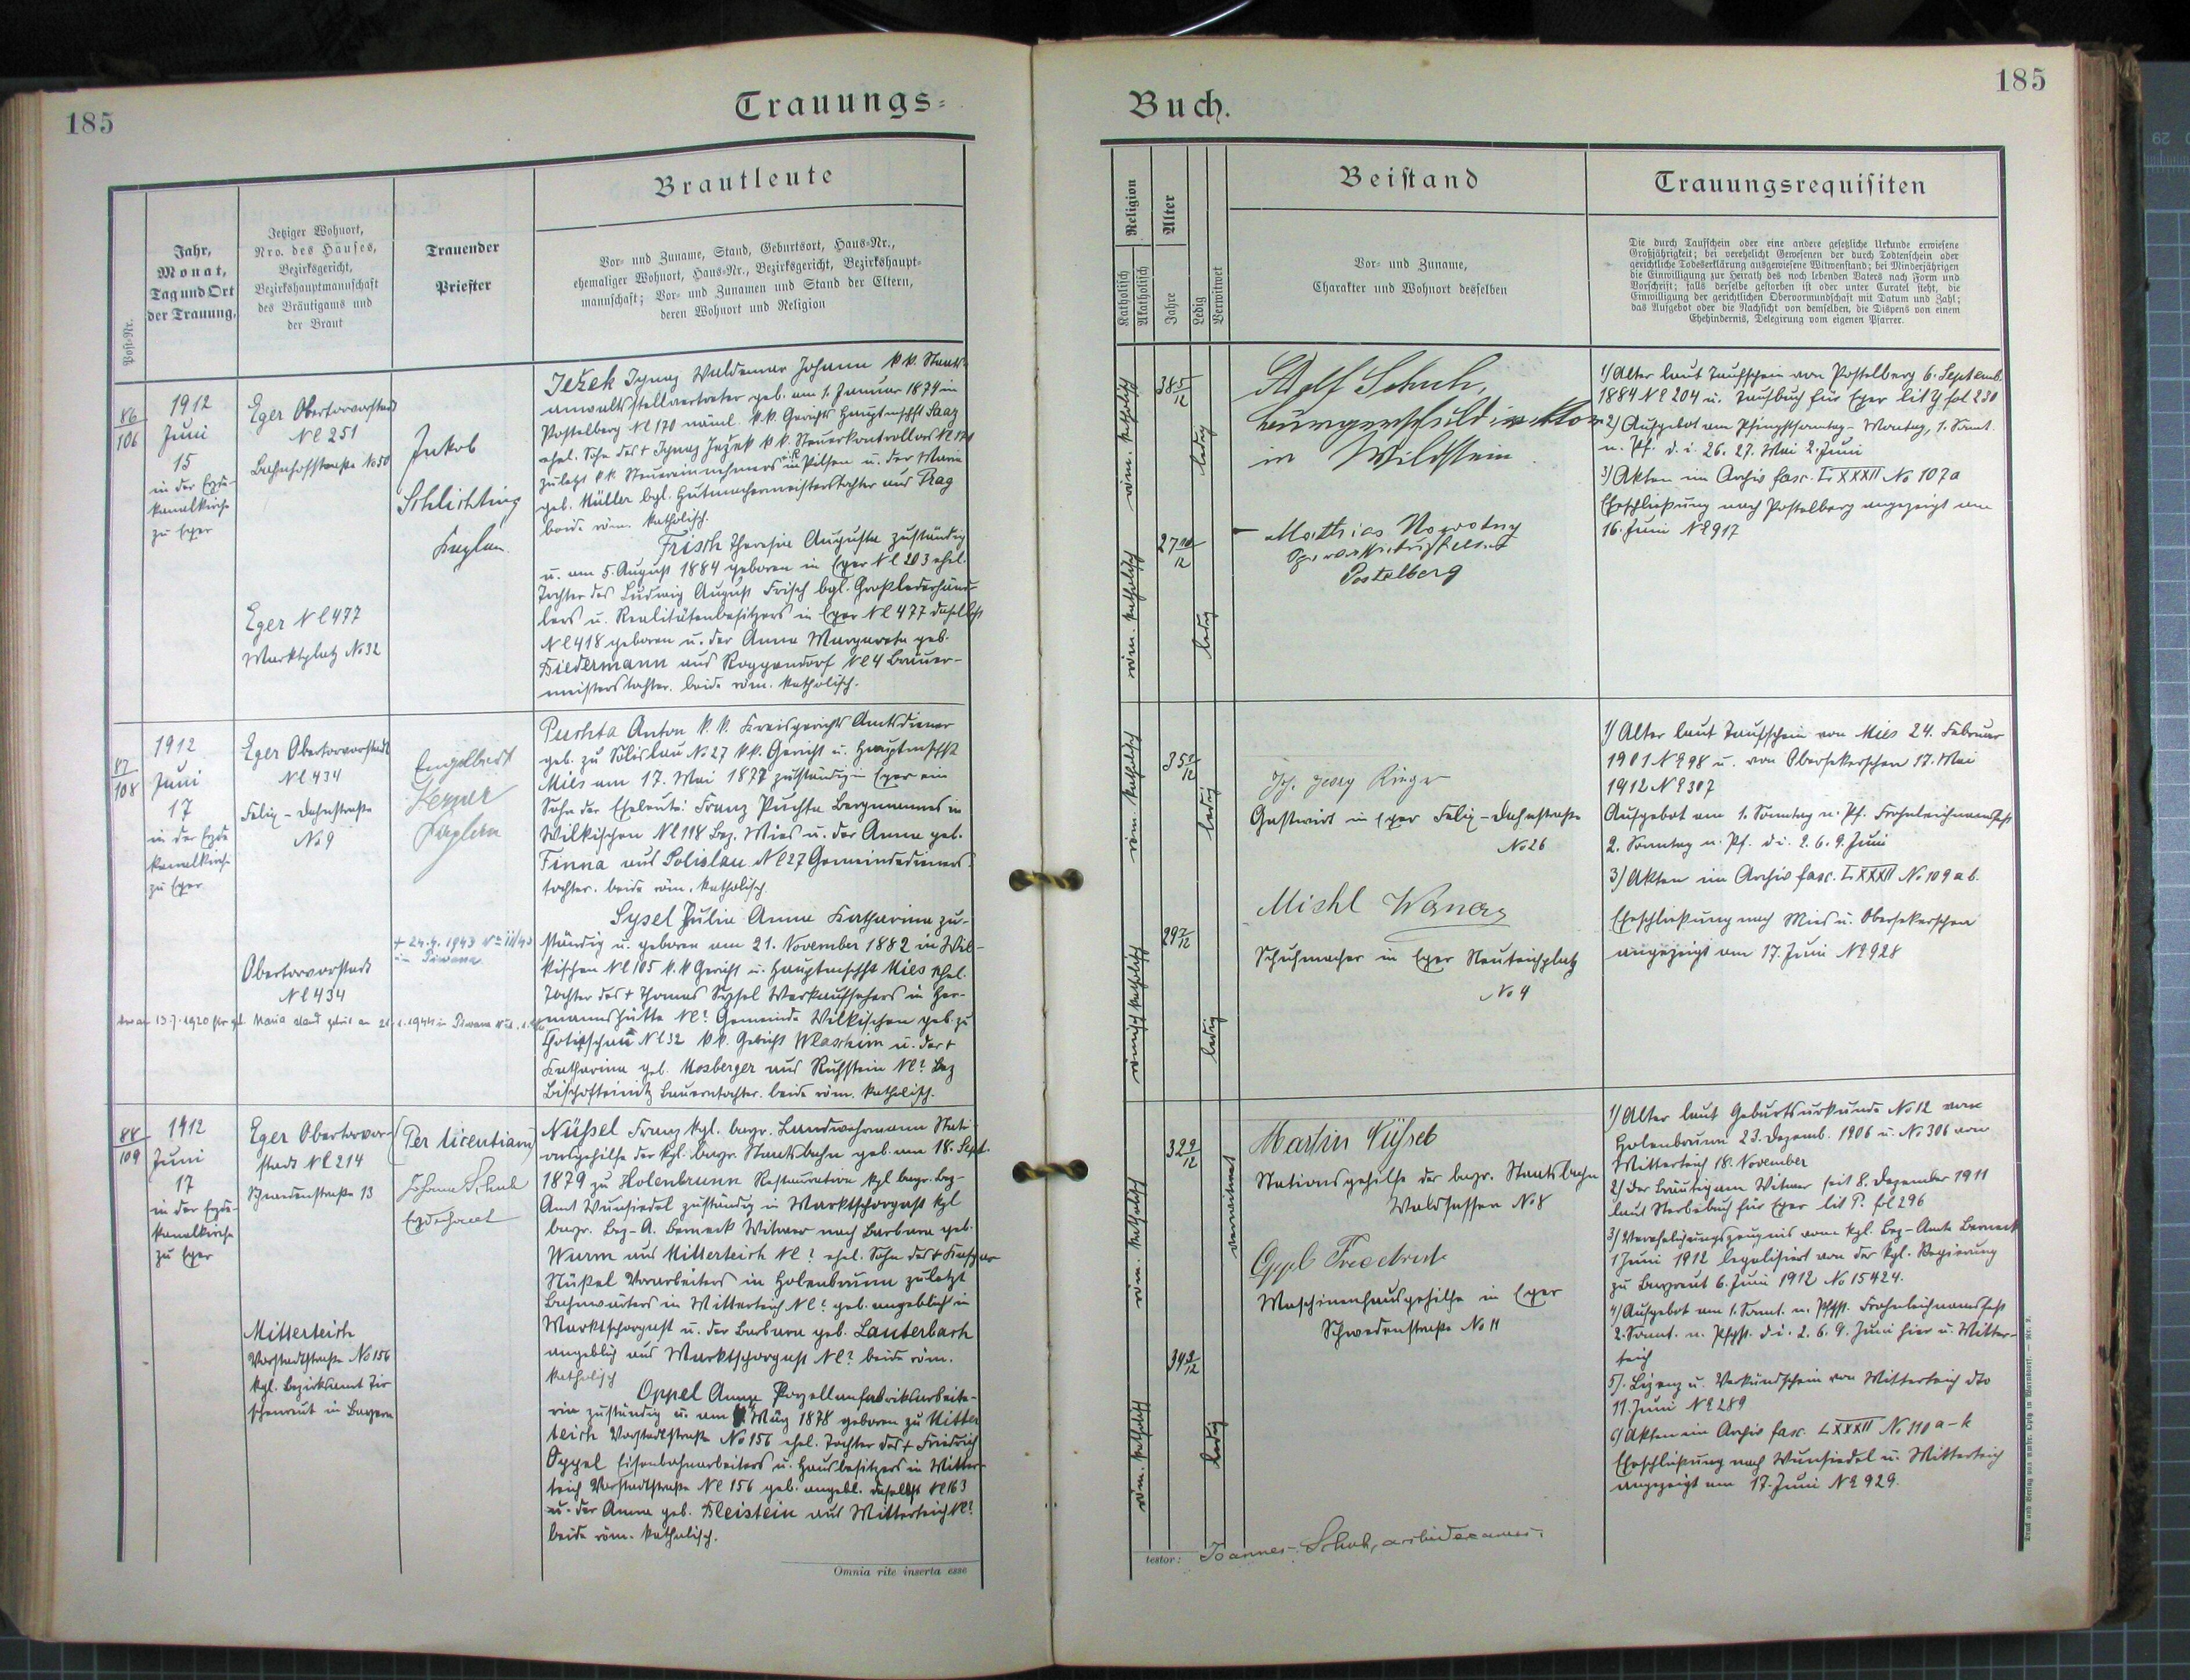 185
Trauungs-
Brautleute
Post-Nr.
Jahr,
Monat,
Tag und Ort
der Trauung,
Jetziger Wohnort,
Nro. des Hauses,
Bezirksgericht,
Bezirkshauptmannschaft
des Bräutigams und
der Braut
Trauender
Priester
Vor- und Zuname, Stand, Geburtsort, Haus-Nr.,
ehemaliger Wohnort, Haus-Nr., Bezirksgericht, Bezirkshaupt-
mannschaft; Vor- und Zunamen und Stand der Eltern,
deren Wohnort und Religion
86
106
1912
Juni
15
in der Erzde-
kanalkirche
zu Eger
Eger Obertorvorstadt
NC 251
Bahnhofstraße No 50
Eger NC 477
Marktplatz No 32
Jakob
Schlichting
Kaplan
Ježek Ignaz Waldemar Johann k.k. Staats-
anwaltsstellvertreter geb. am 1. Januar 1874 in
Postelberg NC 170 k.k. Gerichts Hauptmschft Saaz
ehel. Sohn des + Ignaz Ježek k.k. Steuerkontrollors
zuletzt k.k. Steuereinnehmers in Pilsen u. der Maria
geb. Müller bgl. Hutmachermeisterstochter aus Prag
beide röm. katholisch.
Frisch Theresia Augusta zuständig
u. am 5. August 1884 geboren in Eger NC 203 ehel.
Tochter des Ludwig August Frisch bgl. Großlederhänd-
lers u. Realitätenbesitzers in Eger NC 477 daselbst
NC 418 geboren u. der Anna Margareta geb.
Biedermann aus Roggendorf NC 4 Bauer-
meisterstochter. beide röm. katholisch.
87
108
1912
Juni
17
in der Erzde
kanalkirche
zu Eger
Eger Obertorvorstadt
NC 434
Felix-Dahnstraße
No 9
Obertorvorstadt
NC 434
Engelbert
Kaplan
+ 24.4. 1943
Puchta Anton k.k. Kreisgerichts Amtsdiener
geb. zu Solislau No 27 k.k. Gericht u. Hauptmschft
Mies am 17. Mai 1877 zuständig Eger ein
Sohn der Eheleute: Franz Puchta Bergmannes in
Wilkischen NC 118 Bez. Mies u. der Anna geb.
Finna aus Solislau NC 27 Gemeindedieners-
tochter. beide röm. katholisch.
Sysel Julia Anna Katharina zu-
ständig u. geboren am 21. November 1882 in Wil-
kischen NC 105 k.k. Gericht u. Hauptmschft Mies ehel.
Tochter des + Thomas Sysel Werkaufsehers in Her-
mannshütte NC? Gemeinde Wilkischen geb. zu
NC 32 k.k. Gericht Wlaschim u. der +
Katharina geb. Mosberger aus Ruhstein NC? Bez
Bischofteinitz Bauerntochter. beide röm. katholisch.
88
109
1912
Juni
17
in der Erzde-
kanalkirche
zu Eger
Eger Obertorvor-
stadt NC 214
Schwedenstraße 13
Mitterteich
Vorstadtstraße No 156
kgl. Bezirksamt Tir-
schenreut in Bayern
(Per licentiam)
Johann Schuh
Erzdechant
Nüßel Franz kgl. bayr. Landwehrmann Stati-
onsgehilfe der kgl. bayr. Staatsbahn geb. am 18. Sept.
1879 zu Holenbrunn Restauration kgl. bayr. Bez-
Amt Wunsiedel zuständig in Marktschorgast kgl
bayr. Bez-A. Berneck Witwer nach Barbara geb.
Wurm aus Mitterteich NC? ehel. Sohn des + Kaspar
Nüßel Vorarbeiters in Holenbrunn zuletzt
Bahnwärters in Mitterteich NC? geb. angeblich in
Marktschorgast u. der Barbara geb. Lauterbach
angeblich aus Marktschorgast NC? beide röm.
katholisch
Oppel Anna Porzellanfabriksarbeite-
rin zuständig u. am März 1878 geboren zu Mitter
teich Vorstadtstraße No 156 ehel. Tochter des + Friedrich
Oppel Eisenbahnarbeiters u. Hausbesitzers in Mitter-
teich Vorstadtstraße NC 156 geb. angebl. daselbst NC 163
u. der Anna geb. Bleistein aus Mitterteich NC?
beide röm. katholisch.
Omnia rite inserta esse
185
Buch.
Religion
Katholisch
Akatholisch
Alter
Jahre
Ledig
Verwitwet
Beistand
Vor- und Zuname,
Charakter und Wohnort desselben
Trauungsrequisiten
Die durch Taufschein oder eine andere gesetzliche Urkunde erwiesene
Großjährigkeit; bei verehelicht Gewesenen der durch Todtenschein oder
gerichtliche Todeserklärung ausgewiesene Witwenstand; bei Minderjährigen
die Einwilligung zur Heirath des noch lebenden Vaters nach Form und
Vorschrift; falls derselbe gestorben ist oder unter Curatel steht, die
Einwilligung der gerichtlichen Obervormundschaft mit Datum und Zahl;
das Aufgebot oder die Nachsicht von demselben, die Dispens von einem
Ehehindernis, Delegirung vom eigenen Pfarrer.
röm. katholisch
38 5/12
ledig
röm. katholisch
27 10/12
ledig
Adolf Schuh,
Bürgerschuldirektor
in Wildstein
Mathias Nowotny
Postelberg
1) Alter laut Taufschein von Postelberg 6. Septemb.
1884 No 204 u. Taufbuch für Eger lit Y fol 230
2) Aufgebot am Pfingstsonntag-Montag, 1. Sonnt.
n. Pf. d. i. 26. 27. Mai 2. Juni
3) Akten im Archiv fasc. LXXXII No 107a
Eheschließung nach Postelberg angezeigt am
16. Juni No 917
röm. katholisch
35 1/12
ledig
römisch katholisch
29 7/12
ledig
Joh. Georg Rieger
Gastwirt in Eger Felix-Dahnstraße
No 26
Michl
Schuhmacher in Eger Neuteichplatz
No 4
1) Alter laut Taufschein von Mies 24. Februar
1901 No 98 u. von Obersekerschan 17. Mai
1912 No 307
Aufgebot am 1. Sonntag n. Pf. Frohnleichnamsfest
2. Sonntag n. Pf. d. i. 2. 6. 9. Juni
3) Akten im Archiv fasc. LXXXII No 109 a b.
Eheschließung nach Mies u. Obersekerschan
angezeigt am 17. Juni No 928
röm. katholisch
32 9/12
verwitwet
röm. katholisch
34 3/12
ledig
Martin Nüßel
Stationsgehilfe der bayr. Staatsbahn
Waldsassen No 8
Oppl Friedrich
Maschinenhausgehilfe in Eger
Schwedenstraße No 11
1) Alter laut Geburtsurkunde No 12 von
Holenbrunn 23. Dezemb. 1906 u. No 306 von
Mitterteich 18. November
2) der Bräutigam Witwer seit 8. Dezember 1911
laut Sterbebuch für Eger lit P. fol 296
3) Verehelichungszeugnis vom kgl. Bez-Amte Berneck
1 Juni 1912 legalisiert von der kgl. Regierung
zu Bayreut 6. Juni 1912 No 15424.
4) Aufgebot am 1. Sonnt. n. Pfgst. Frohnleichnamsfest
2. Sonnt. n. Pfgst. d. i. 2. 6. 9. Juni hier u. Mitter-
teich
5). Lizenz u. Verkündschein von Mitterteich dto
11. Juni No 289
6) Akten im Archiv fasc. LXXXII No 110 a-k
Eheschließung nach Wunsiedel u. Mitterteich
angezeigt am 17. Juni No 929.
testor: Joannes Schuh, archidecanus.
Druck und Verlag von Ambr. Opitz in Warnsdorf. — Nr. 2.